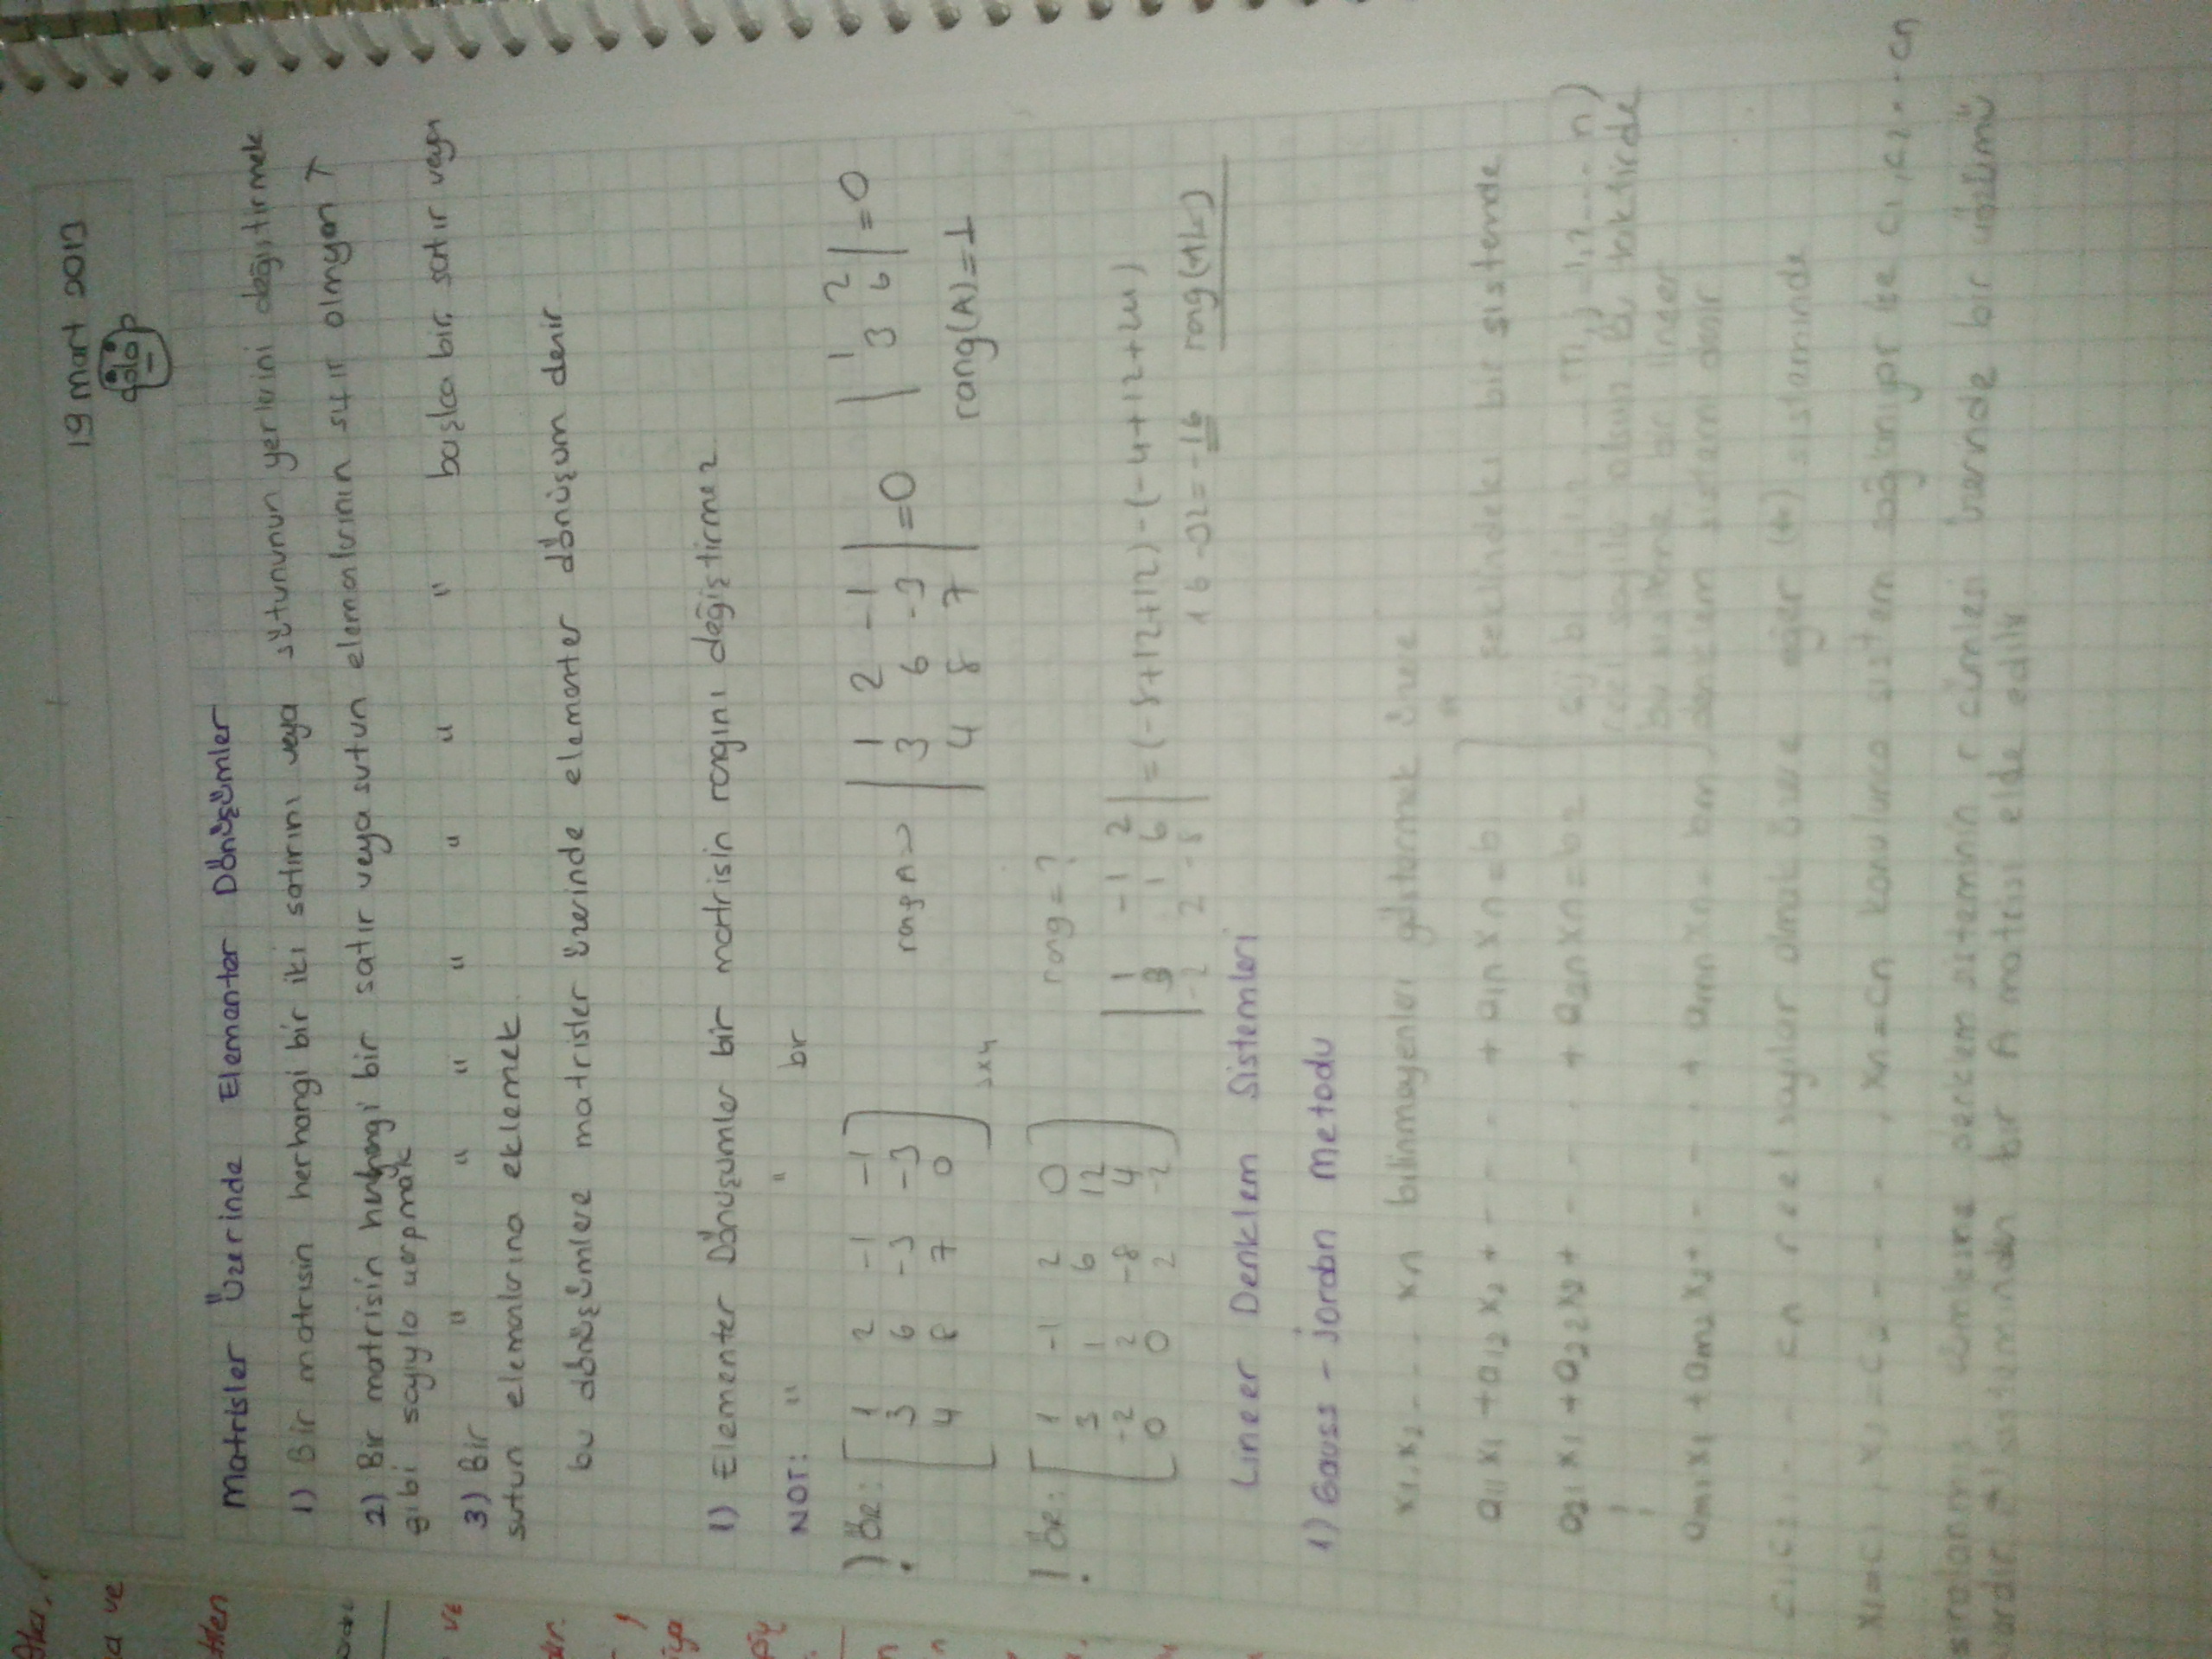 19 mart 2013
Matrisler Üzerinde Elementer Dönüşümler
1) Bir matrisin herhangi bir iki satırını veya sütununun yerlerini değiştirmek
2) Bir matrisin herhangi bir satır veya sutun elemanlarının sıfır olmyan
gibi sayıyla
3) Bir " " " " " " " başka bir satır veya
sutun elemanlarına eklemek
bu dönüşümlere matrisler üzerinde elementer dönüşum denir
1) Elementer Dönuşumler bir matrisin rangını değiştirmez
NOT: " " br
ÖR: 1 2 -1 -1
3 6 -3 -3
4 8 7 0
3x4
rang A
1 2 -1
3 6 -3
4 8 7
=0
1 2
3 6
=0
rang(A)=1
! ÖR: 1 -1 2 0
3 1 6 12
-2 2 -8 4
0 0 2 -2
rang=?
1 -1 2
3 1 6
-2 2 -8
=(-8+12+12)-(-4+12+24)
16-32=-16
Lineer Denklem Sistemleri
1) Gauss - jordan Metodu
x1,x2.... xn bilinmeyenleri göstermek üzere
a11x1 +a12x2 + - - - + a1nxn=b
şeklindeki bir sistemde
a21x1 +a22x2+ - - - + a2nxn=b2
n)
reel sayılar olsun Bu taktirde
bu sisteme bir lineer
am1x1 +am2x2+ - - - + amnxn= bm denklem sistemi denir
c1,c2,- - cn reel sayılar olmak üzere eğer (*) sisteminde
x1=c1, x2=c2 - - - -, xn=cn konulunca sistem sağlanıyor ise c1,c2...cn
sıralanmış cümlesine denklem sisteminin r cümlesi üzerinde bir çözümü
vardır. sisteminden bir A matrisi elde edilir